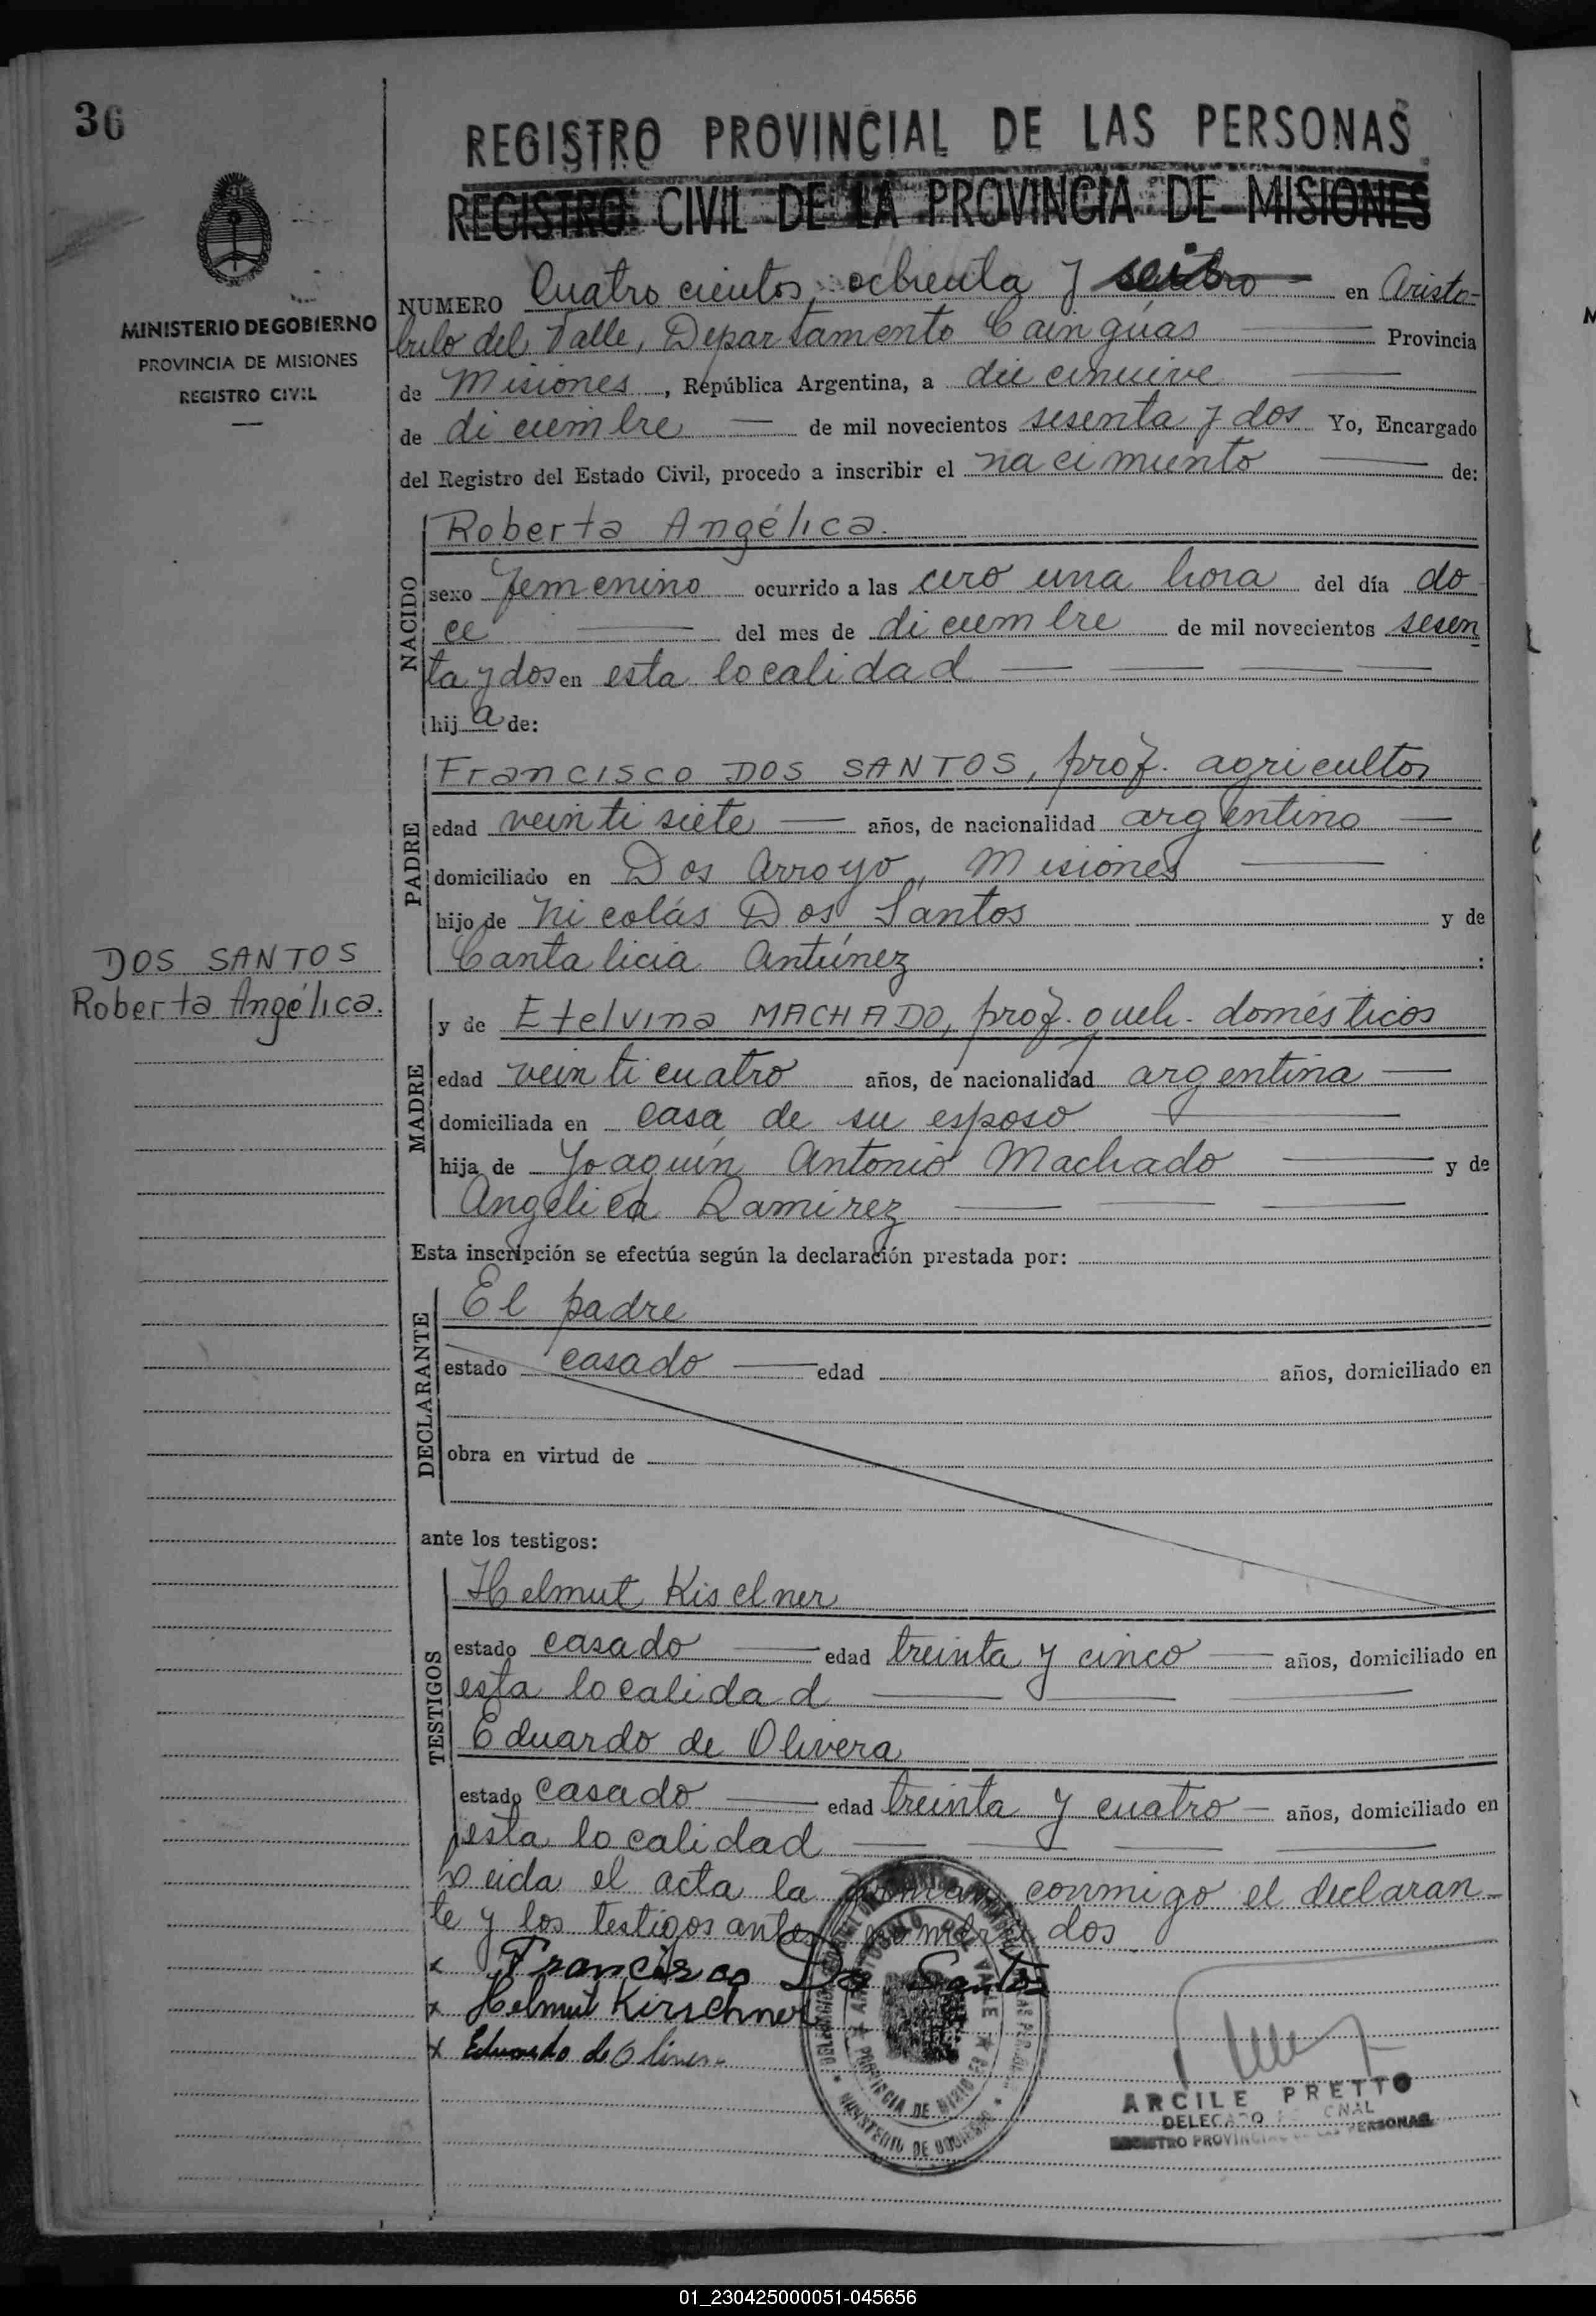 36
MINISTERIO DE GOBIERNO
PROVINCIA DE MISIONES
REGISTRO CIVIL
REGISTRO PROVINCIAL DE LAS PERSONAS
REGISTRO CIVIL DE LA PROVINCIA DE MISIONES
NUMERO Cuatro cientos, ochenta y en Aristo-
bulo del Valle, Departamento Cainguas Provincia
de Misiones, República Argentina, a diecinueve
de diciembre de mil novecientos sesenta y dos Yo, Encargado
del Registro del Estado Civil, procedo a inscribir el nacimiento de:
NACIDO
Roberta Angélica.
sexo femenino ocurrido a las cero una hora del día do
ce del mes de diciembre de mil novecientos sesen
ta y dos en esta localidad
hija de:
PADRE
Francisco DOS SANTOS, prof. agricultor
edad veintisiete años, de nacionalidad argentino
domiciliado en Dos Arroyo, Misiones
hijo de Nicolás Dos Santos y de
Cantalicia Antúnez :
DOS SANTOS
Roberta Angélica.
MADRE
y de Etelvina MACHADO, prof. queh. domésticos
edad veinticuatro años, de nacionalidad argentina
domiciliada en casa de su esposo
hija de Joaquín Antonio Machado y de
Angélica Ramirez
Esta inscripción se efectúa según la declaración prestada por:
DECLARANTE
El padre
estado casado edad años, domiciliado en
obra en virtud de
ante los testigos:
TESTIGOS
Helmut Kischner
estado casado edad treinta y cinco años, domiciliado en
esta localidad
Eduardo de Olivera
estado casado edad treinta y cuatro años, domiciliado en
esta localidad
Leida el acta la firman conmigo el declaran-
te y los testigos antes nombrados
x Francisco Do Santos
x Helmut Kirschner
x Eduardo de Olivera
ARISTOBULO DEL VALLE
PROVINCIA DE MISIONES
MINISTERIO DE GOBIERNO
ARCILE PRETTO
DELEGADO
REGISTRO PROVINCIAL DE LAS PERSONAS
01_230425000051-045656